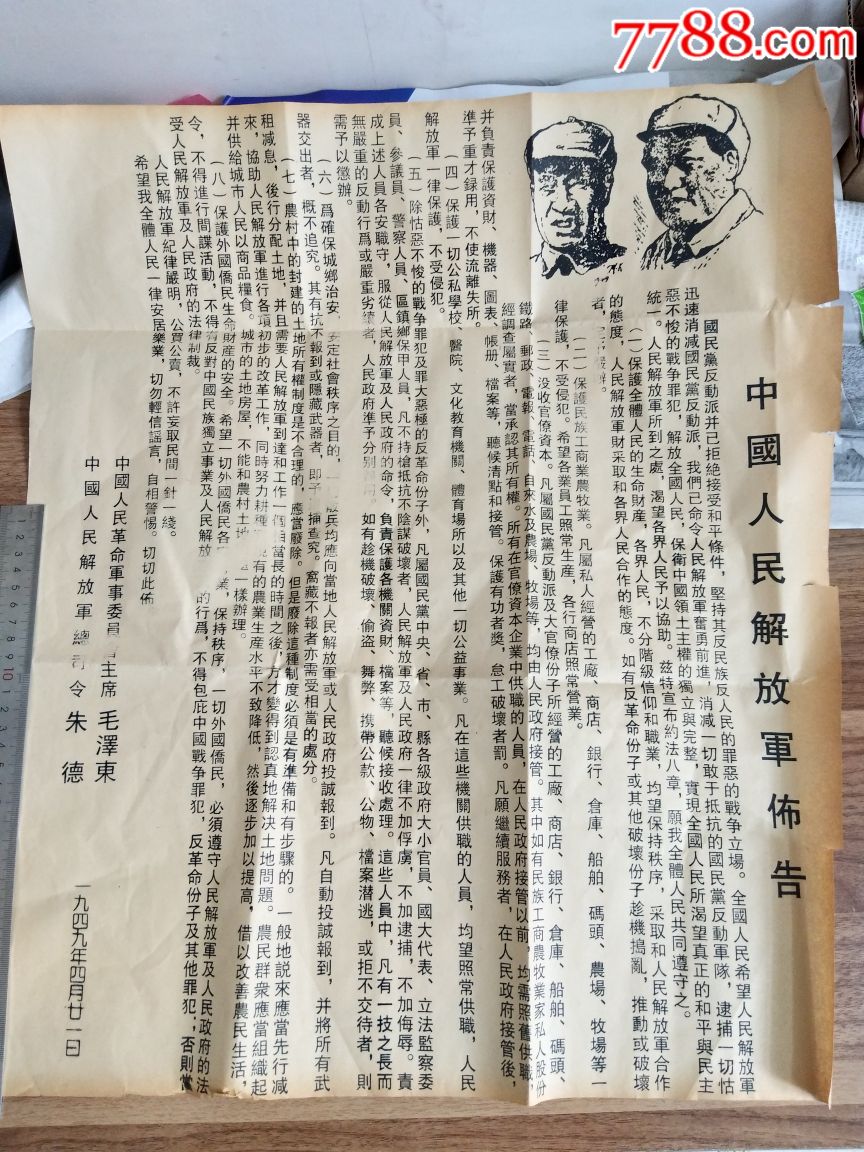 7788.com
中國人民解放軍佈告
國民黨反動派并已拒絶接受和平條件，堅持其反民族反人民的罪惡的戰争立場。全國人民希望人民解放軍
迅速消滅國民黨反動派，我們已命令人民解放軍奮勇前進，消滅一切敢于抵抗的國民黨反動軍隊，逮捕一切怙
惡不悛的戰争罪犯，解放全國人民，保衛中國領土主權的獨立與完整，實現全國人民所渴望真正的和平與民主
統一。人民解放軍所到之處，渴望各界人民予以協助。兹特宣布約法八章，願我全體人民共同遵守之。
（一）保護全體人民的生命財產，各界人民，不分階級信仰和職業，均望保持秩序，采取和人民解放軍合作
的態度，人民解放軍財采取和各界人民合作的態度。如有反革命份子或其他破壞份子趁機搗亂，推動或破壞
者，
（二）保護民族工商業農牧業。凡屬私人經營的工廠、商店、銀行、倉庫、船舶、碼頭、農場、牧場等一
律保護，不受侵犯。希望各業員工照常生産，各行商店照常營業。
（三）没收官僚資本。凡屬國民黨反動派及大官僚份子所經營的工廠、商店、銀行、倉庫、船舶、碼頭、
鐵路、郵政、電報、電話、自來水及農場、牧場等，均由人民政府接管。其中如有民族工商農牧業家私人股份
經調查屬實者，當承認其所有權。所有在官僚資本企業中供職的人員，在人民政府接管以前，均需照舊供職，
并負責保護資財、機器、圖表、帳册、檔案等，聽候清點和接管。保護有功者奬，怠工破壞者罰。凡願繼續服務者，在人民政府接管後，
準予重才録用，不使流離失所。
（四）保護一切公私學校、醫院、文化教育機關、體育場所以及其他一切公益事業。凡在這些機關供職的人員，均望照常供職，人民
解放軍一律保護，不受侵犯。
（五）除怙惡不悛的戰争罪犯及罪大惡極的反革命份子外，凡屬國民黨中央、省、市、縣各級政府大小官員、國大代表、立法監察委
員、參議員、警察人員、區鎮鄉保甲人員，凡不持槍抵抗不陰謀破壞者，人民解放軍及人民政府一律不加俘虜，不加逮捕，不加侮辱。責
成上述人員各安職守，服從人民解放軍及人民政府的命令，負責保護各機關資財、檔案等，聽候接收處理。這些人員中，凡有一技之長而
無嚴重的反動行爲或嚴重劣績者，人民政府準予分别 用。如有趁機破壞、偷盗、舞弊、携帶公款、公物、檔案潜逃，或拒不交待者，則
需予以懲辦。
（六）爲確保城鄉治安、安定社會秩序之目的，一 散兵均應向當地人民解放軍或人民政府投誠報到。凡自動投誠報到，并將所有武
器交出者，概不追究。其有抗不報到或隱藏武器者，即予 捕查究。窩藏不報者亦需受相當的處分。
（七）農村中的封建的土地所有權制度是不合理的，應當廢除。但是廢除這種制度必須是有準備和有步驟的。一般地説來應當先行減
租减息，後行分配土地，并且需要人民解放軍到達和工作一個相當長的時間之後，方才變得到認真地解決土地問題。農民群衆應當組織起
來，協助人民解放軍進行各項初步的改革工作，同時努力耕種 有的農業生産水平不致降低，然後逐步加以提高，借以改善農民生活，
并供給城市人民以商品糧食。城市的土地房屋，不能和農村土地 一樣辦理。
（八）保護外國僑民生命財産的安全。希望一切外國僑民各 業，保持秩序，一切外國僑民，必須遵守人民解放軍及人民政府的法
令，不得進行間諜活動，不得有反對中國民族獨立事業及人民解放 的行爲，不得包庇中國戰争罪犯，反革命份子及其他罪犯；否則當
受人民解放軍及人民政府的法律制裁。
人民解放軍紀律嚴明，公買公賣，不許妄取民間一針一綫。
希望我全體人民一律安居樂業，切勿輕信謡言，自相警惕。切切此佈
中國人民革命軍事委員會主席 毛澤東
中國人民解放軍總司令 朱德
一九四九年四月廿一日